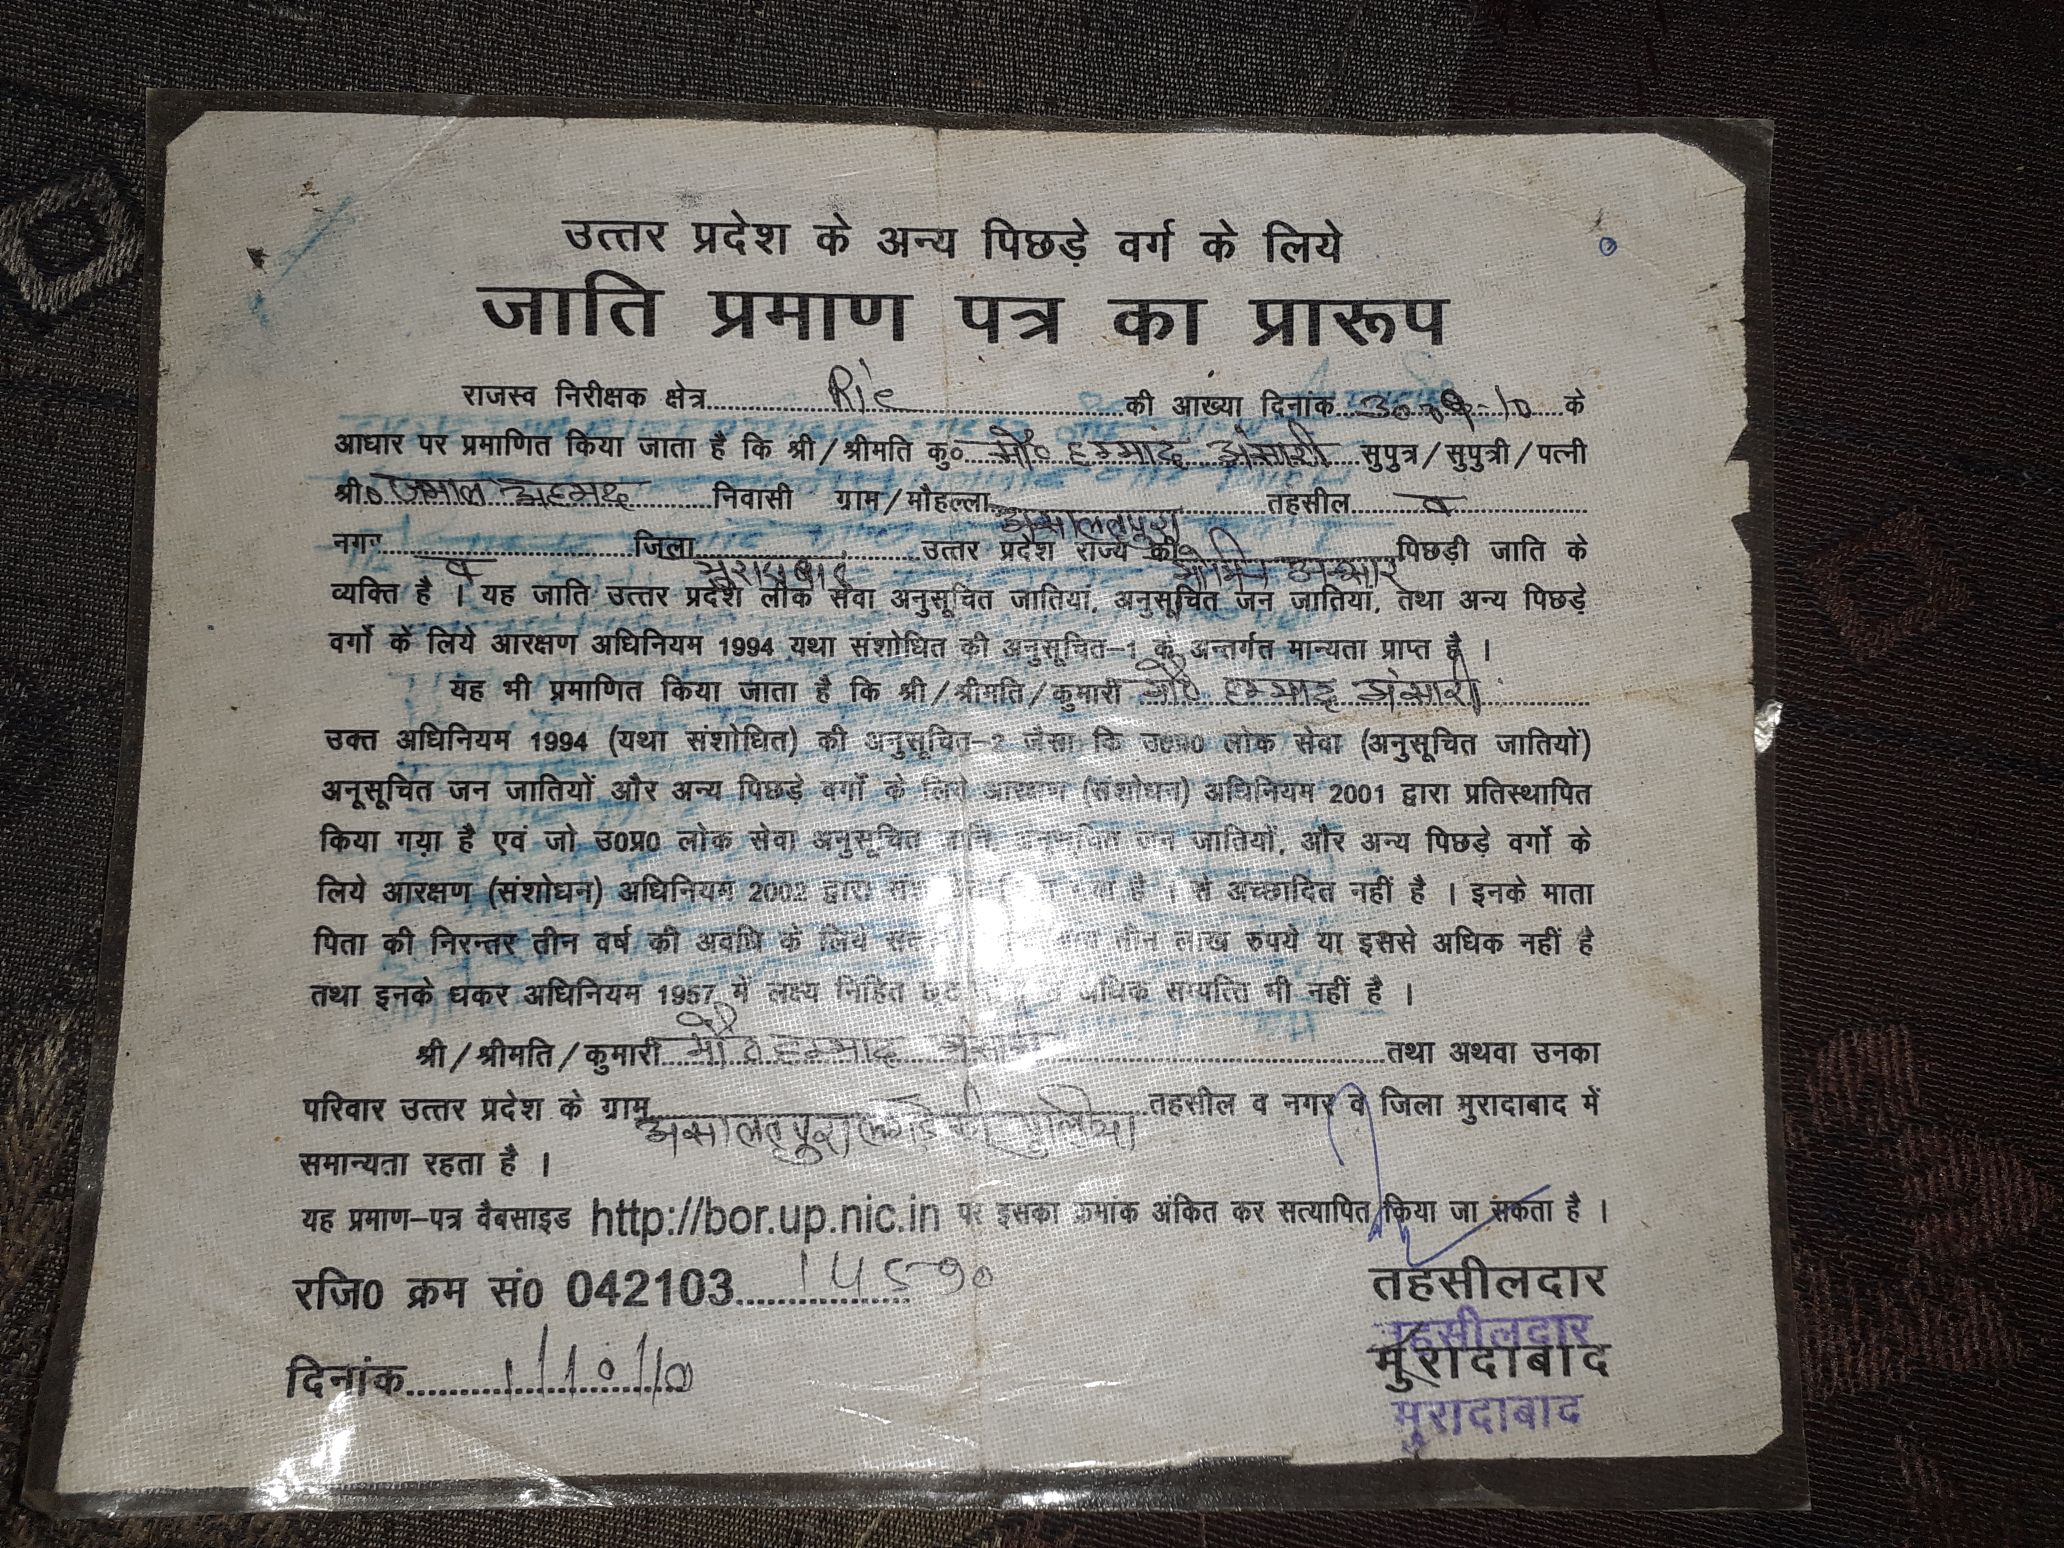 उत्तर प्रदेश के अन्य पिछड़े वर्ग के लिये
जाति प्रमाण पत्र का प्रारूप
राजस्व निरीक्षक क्षेत्र की आख्या दिनांक 30.09-10 के
आधार पर प्रमाणित किया जाता है कि श्री/श्रीमति कु० मौ० हम्माद अंसारी सुपुत्र/सुपुत्री/पत्नी
श्री० जमाल अहमद निवासी ग्राम/मौहल्ला असालतपुरा तहसील व
नगर व जिला मुरादाबाद उत्तर प्रदेश राज्य की मोमिन अन्सार पिछड़ी जाति के
व्यक्ति है । यह जाति उत्तर प्रदेश लोक सेवा अनुसूचित जातियां, अनुसूचित जन जातियां, तथा अन्य पिछड़े
वर्गो के लिये आरक्षण अधिनियम 1994 यथा संशोधित की अनुसूचित-1 के अन्तर्गत मान्यता प्राप्त है ।
यह भी प्रमाणित किया जाता है कि श्री/श्रीमति/कुमारी मौ० हम्माद अंसारी
उक्त अधिनियम 1994 (यथा संशोधित) की अनुसूचित-2 जैसा कि उ०प्र० लोक सेवा (अनुसूचित जातियों)
अनूसूचित जन जातियों और अन्य पिछड़े वर्गों के लिये आरक्षण (संशोधन) अधिनियम 2001 द्वारा प्रतिस्थापित
किया गया है एवं जो उ0प्र0 लोक सेवा अनुसूचित जाति, अनुसूचित जन जातियों, और अन्य पिछड़े वर्गो के
लिये आरक्षण (संशोधन) अधिनियम 2002 द्वारा है । से अच्छादित नहीं है । इनके माता
पिता की निरन्तर तीन वर्ष की अवधि के लिये तीन लाख रुपये या इससे अधिक नहीं है
तथा इनके धकर अधिनियम 1957 में लक्ष्य निहित छूट अधिक सम्पत्ति भी नहीं है ।
श्री/श्रीमति/कुमारी मौ० हम्माद अंसारी तथा अथवा उनका
परिवार उत्तर प्रदेश के ग्राम असालतपुरा की पुलिया तहसील व नगर व जिला मुरादाबाद में
समान्यता रहता है ।
यह प्रमाण-पत्र वैबसाइड http://bor.up.nic.in पर इसका क्रमांक अंकित कर सत्यापित किया जा सकता है ।
रजि0 क्रम सं0 042103 14590
दिनांक 1/10/10
तहसीलदार
तहसीलदार
मुरादाबाद
मुरादाबाद